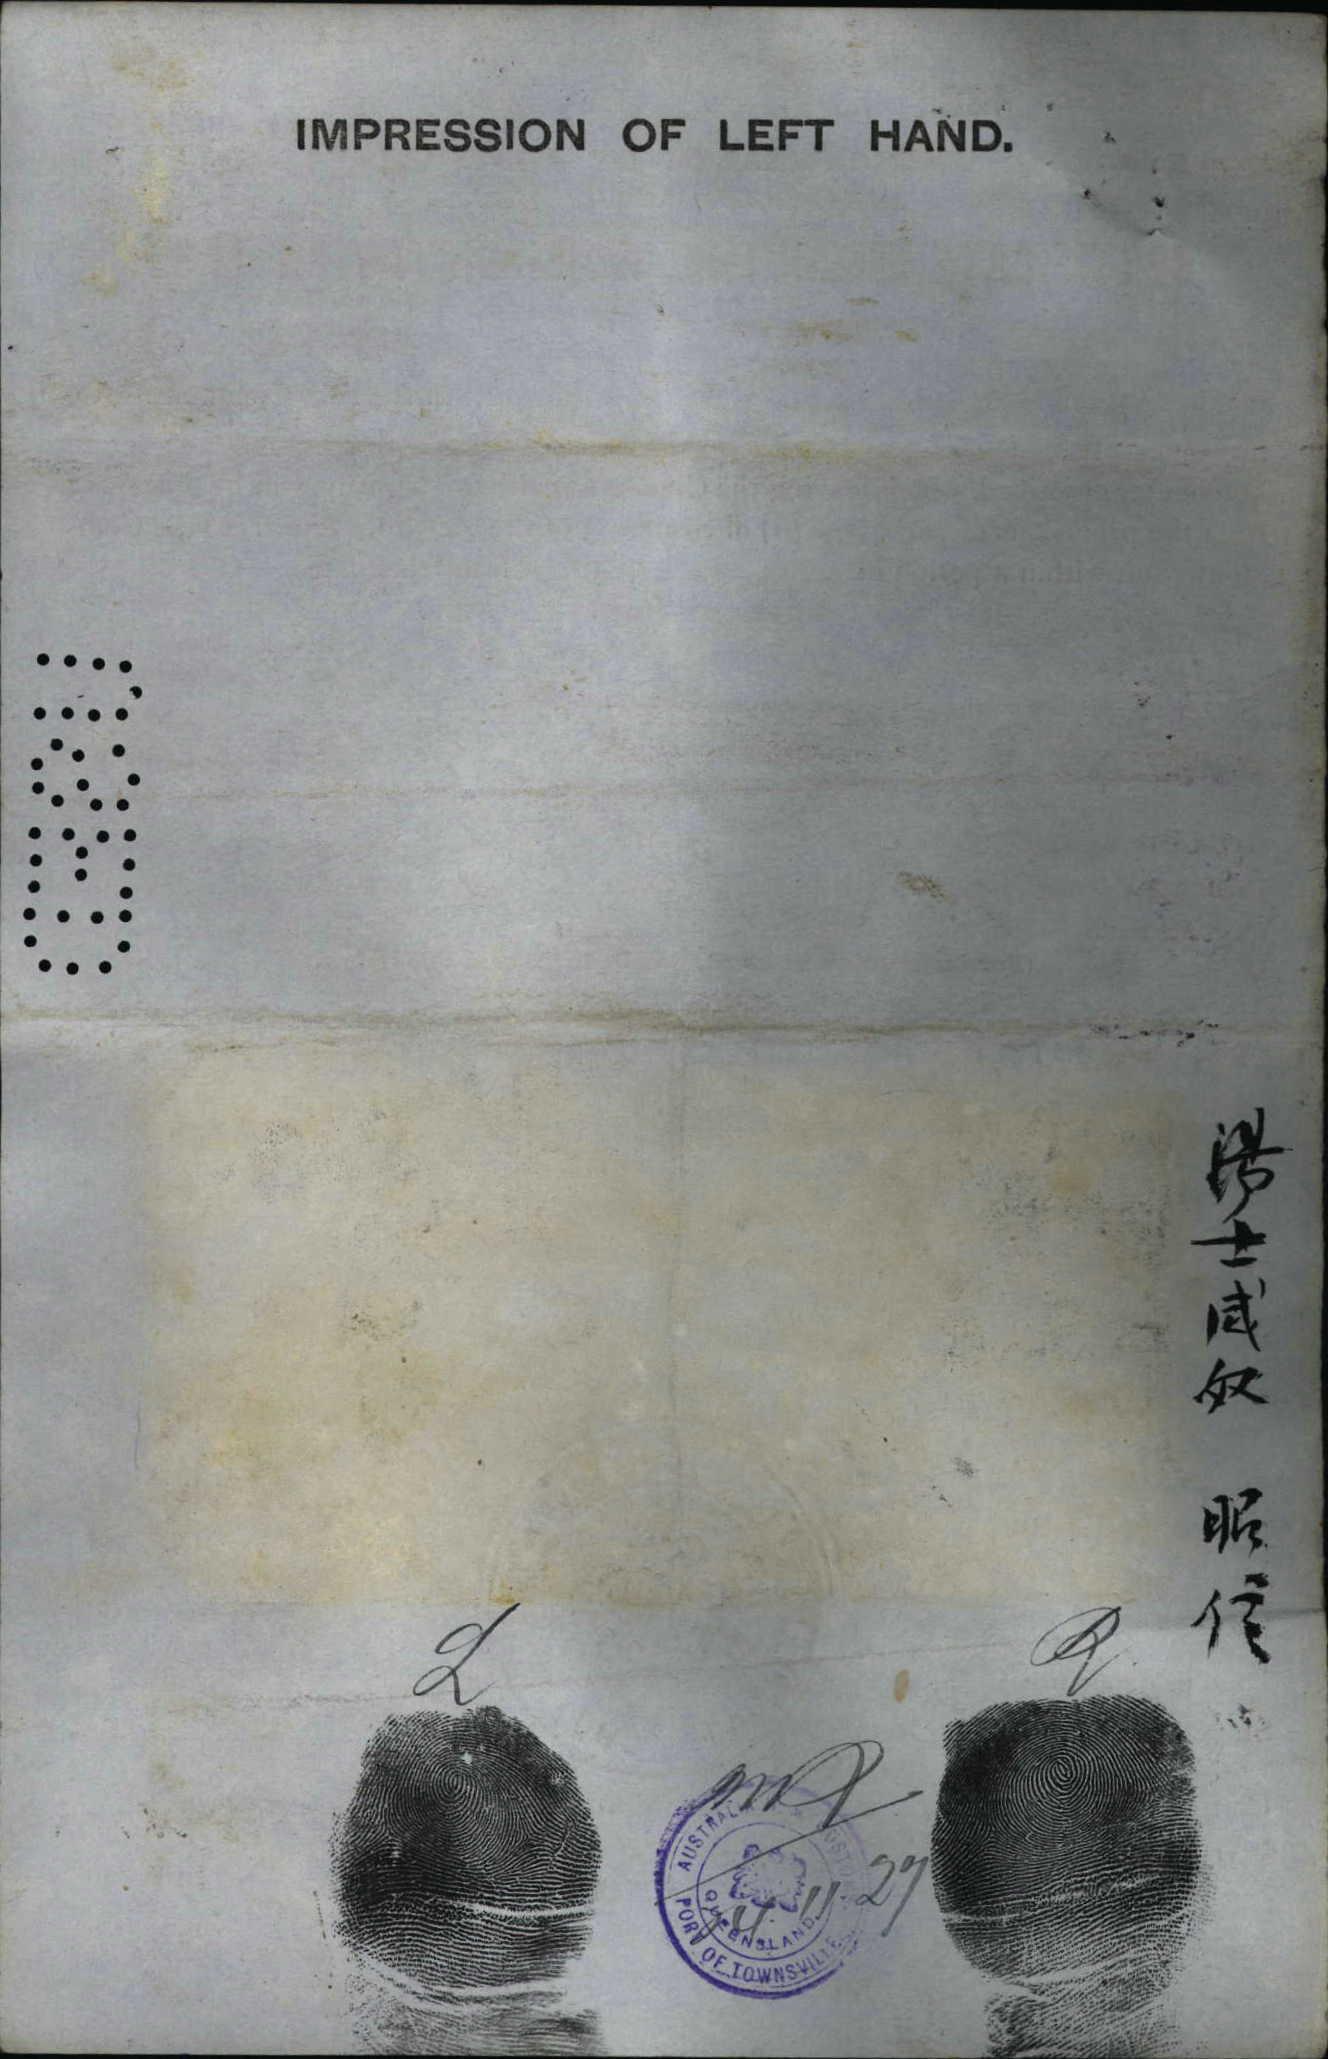 IMPRESSION OF LEFT HAND.
湯士威奴 昭信
L
R
AUSTRALIA CUSTOMS
QUEENSLAND
PORT OF TOWNSVILLE
11 27